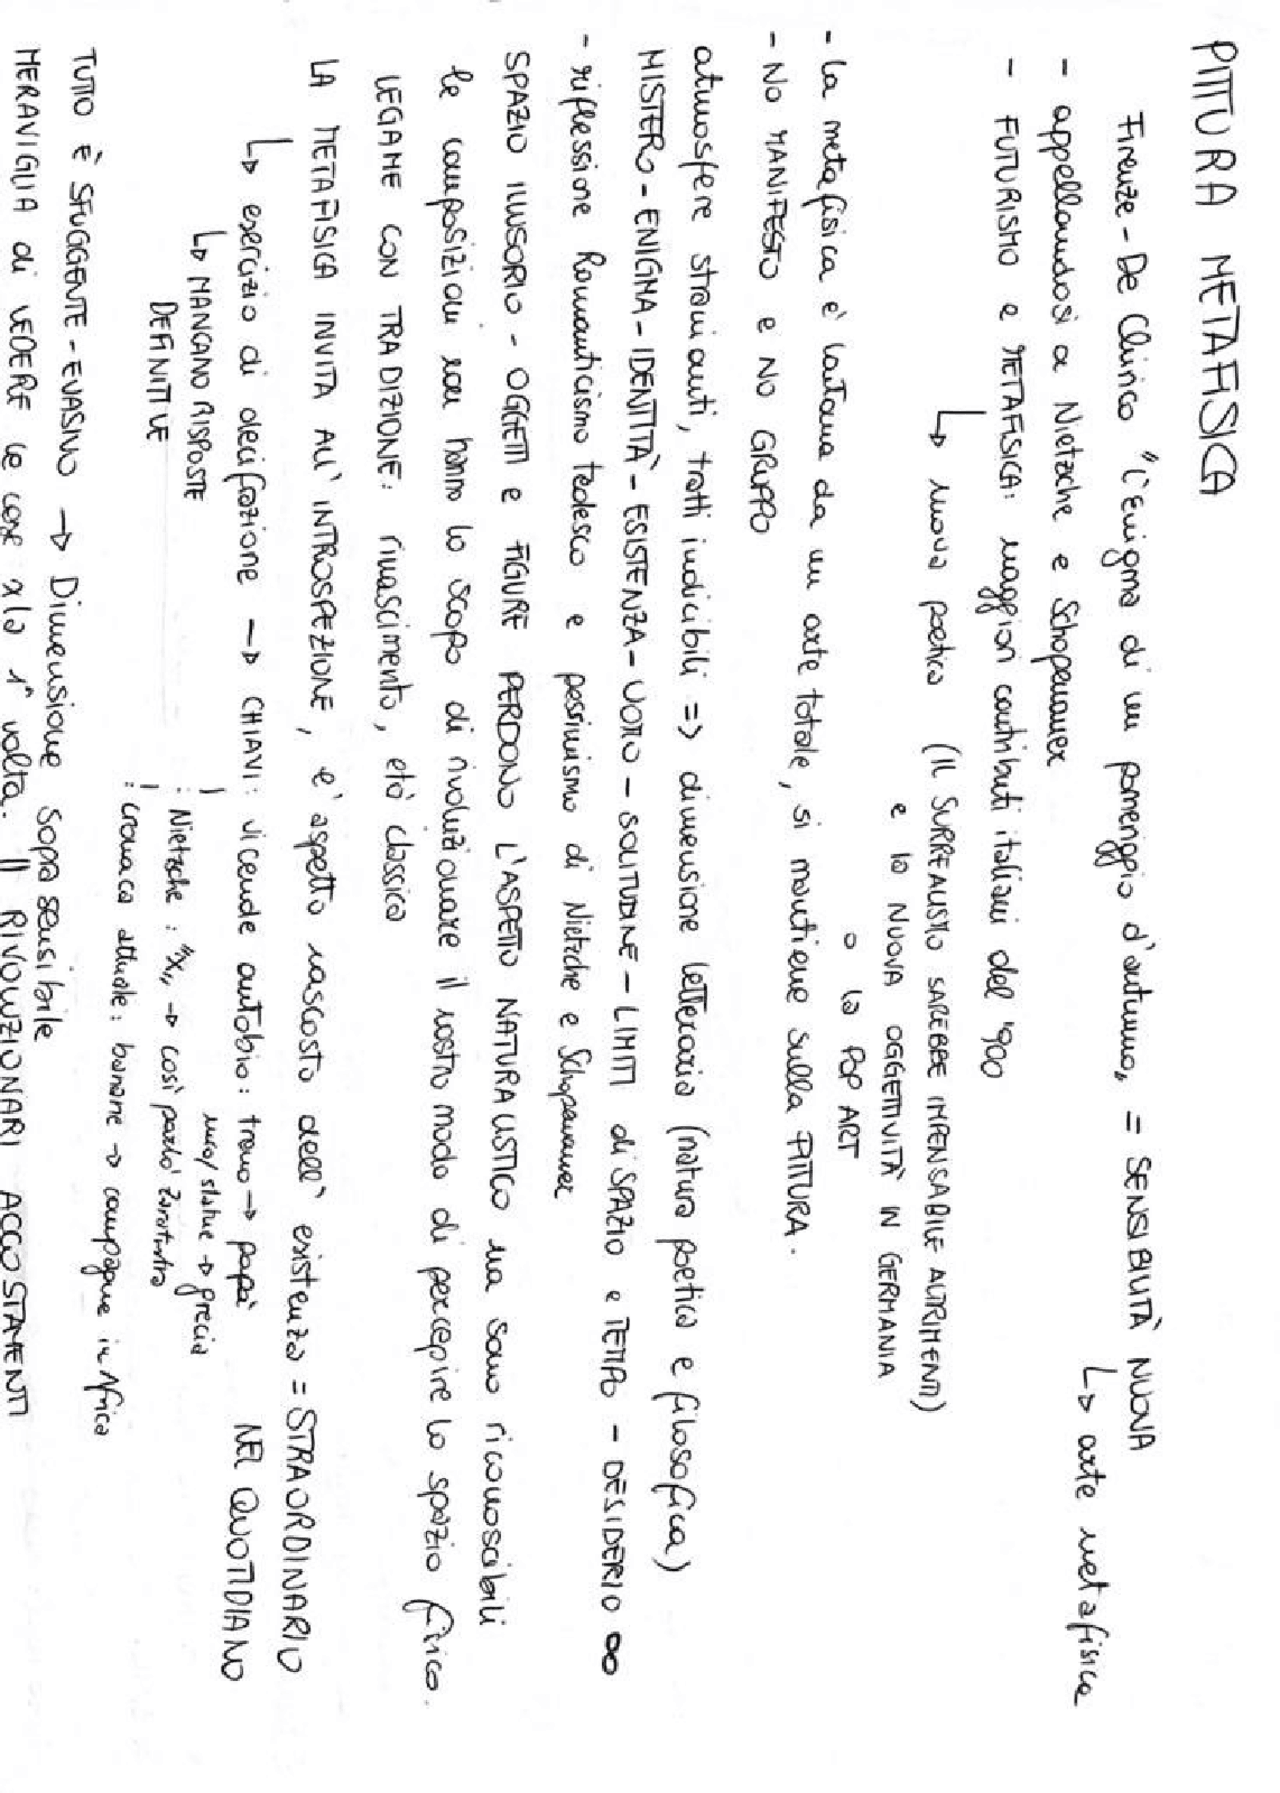 PITTURA METAFISICA
Firenze - De Chirico "L'Enigma di un pomeriggio d'autunno„ = SENSIBILITÀ NUOVA
↳ arte metafisica
- appellandosi a Nietzche e Schopenauer
- FUTURISMO e METAFISICA: maggiori contributi italiani del '900
↳ nuova poetica (IL SURREALISMO SAREBBE IMPENSABILE ALTRIMENTI)
e la NUOVA OGGETTIVITÀ IN GERMANIA
o la POP ART
- la metafisica è lontana da un arte totale, si mantiene sulla PITTURA.
- NO MANIFESTO e NO GRUPPO
atmosfere stranianti, tratti indicibili => dimensione letteraria (natura poetica e filosofica)
MISTERO - ENIGMA - IDENTITÀ - ESISTENZA - VUOTO - SOLITUDINE - LIMITI di SPAZIO e TEMPO - DESIDERIO ∞
- riflessione Romanticismo tedesco e pessimismo di Nietzche e Schopenauer
SPAZIO ILLUSORIO - OGGETTI e FIGURE PERDONO L'ASPETTO NATURALISTICO ma sono riconoscibili
le composizioni non hanno lo scopo di rivoluzionare il nostro modo di percepire lo spazio fisico.
LEGAME CON TRADIZIONE: rinascimento, età classica
LA METAFISICA INVITA ALL'INTROSPEZIONE, è aspetto nascosto dell'esistenza = STRAORDINARIO
NEL QUOTIDIANO
↳ esercizio di decifrazione → CHIAVI: vicende autobio: treno → papà
statue → grecia
↳ MANCANO RISPOSTE
DEFINITIVE
: Nietzche: "X„ → così parlò Zaratustra
: cronaca attuale: banane → campagne in Africa
TUTTO È SFUGGENTE - EVASIVO → Dimensione soprasensibile
MERAVIGLIA di VEDERE le cose x la 1ª volta. Il RIVOLUZIONARI ACCOSTAMENTI